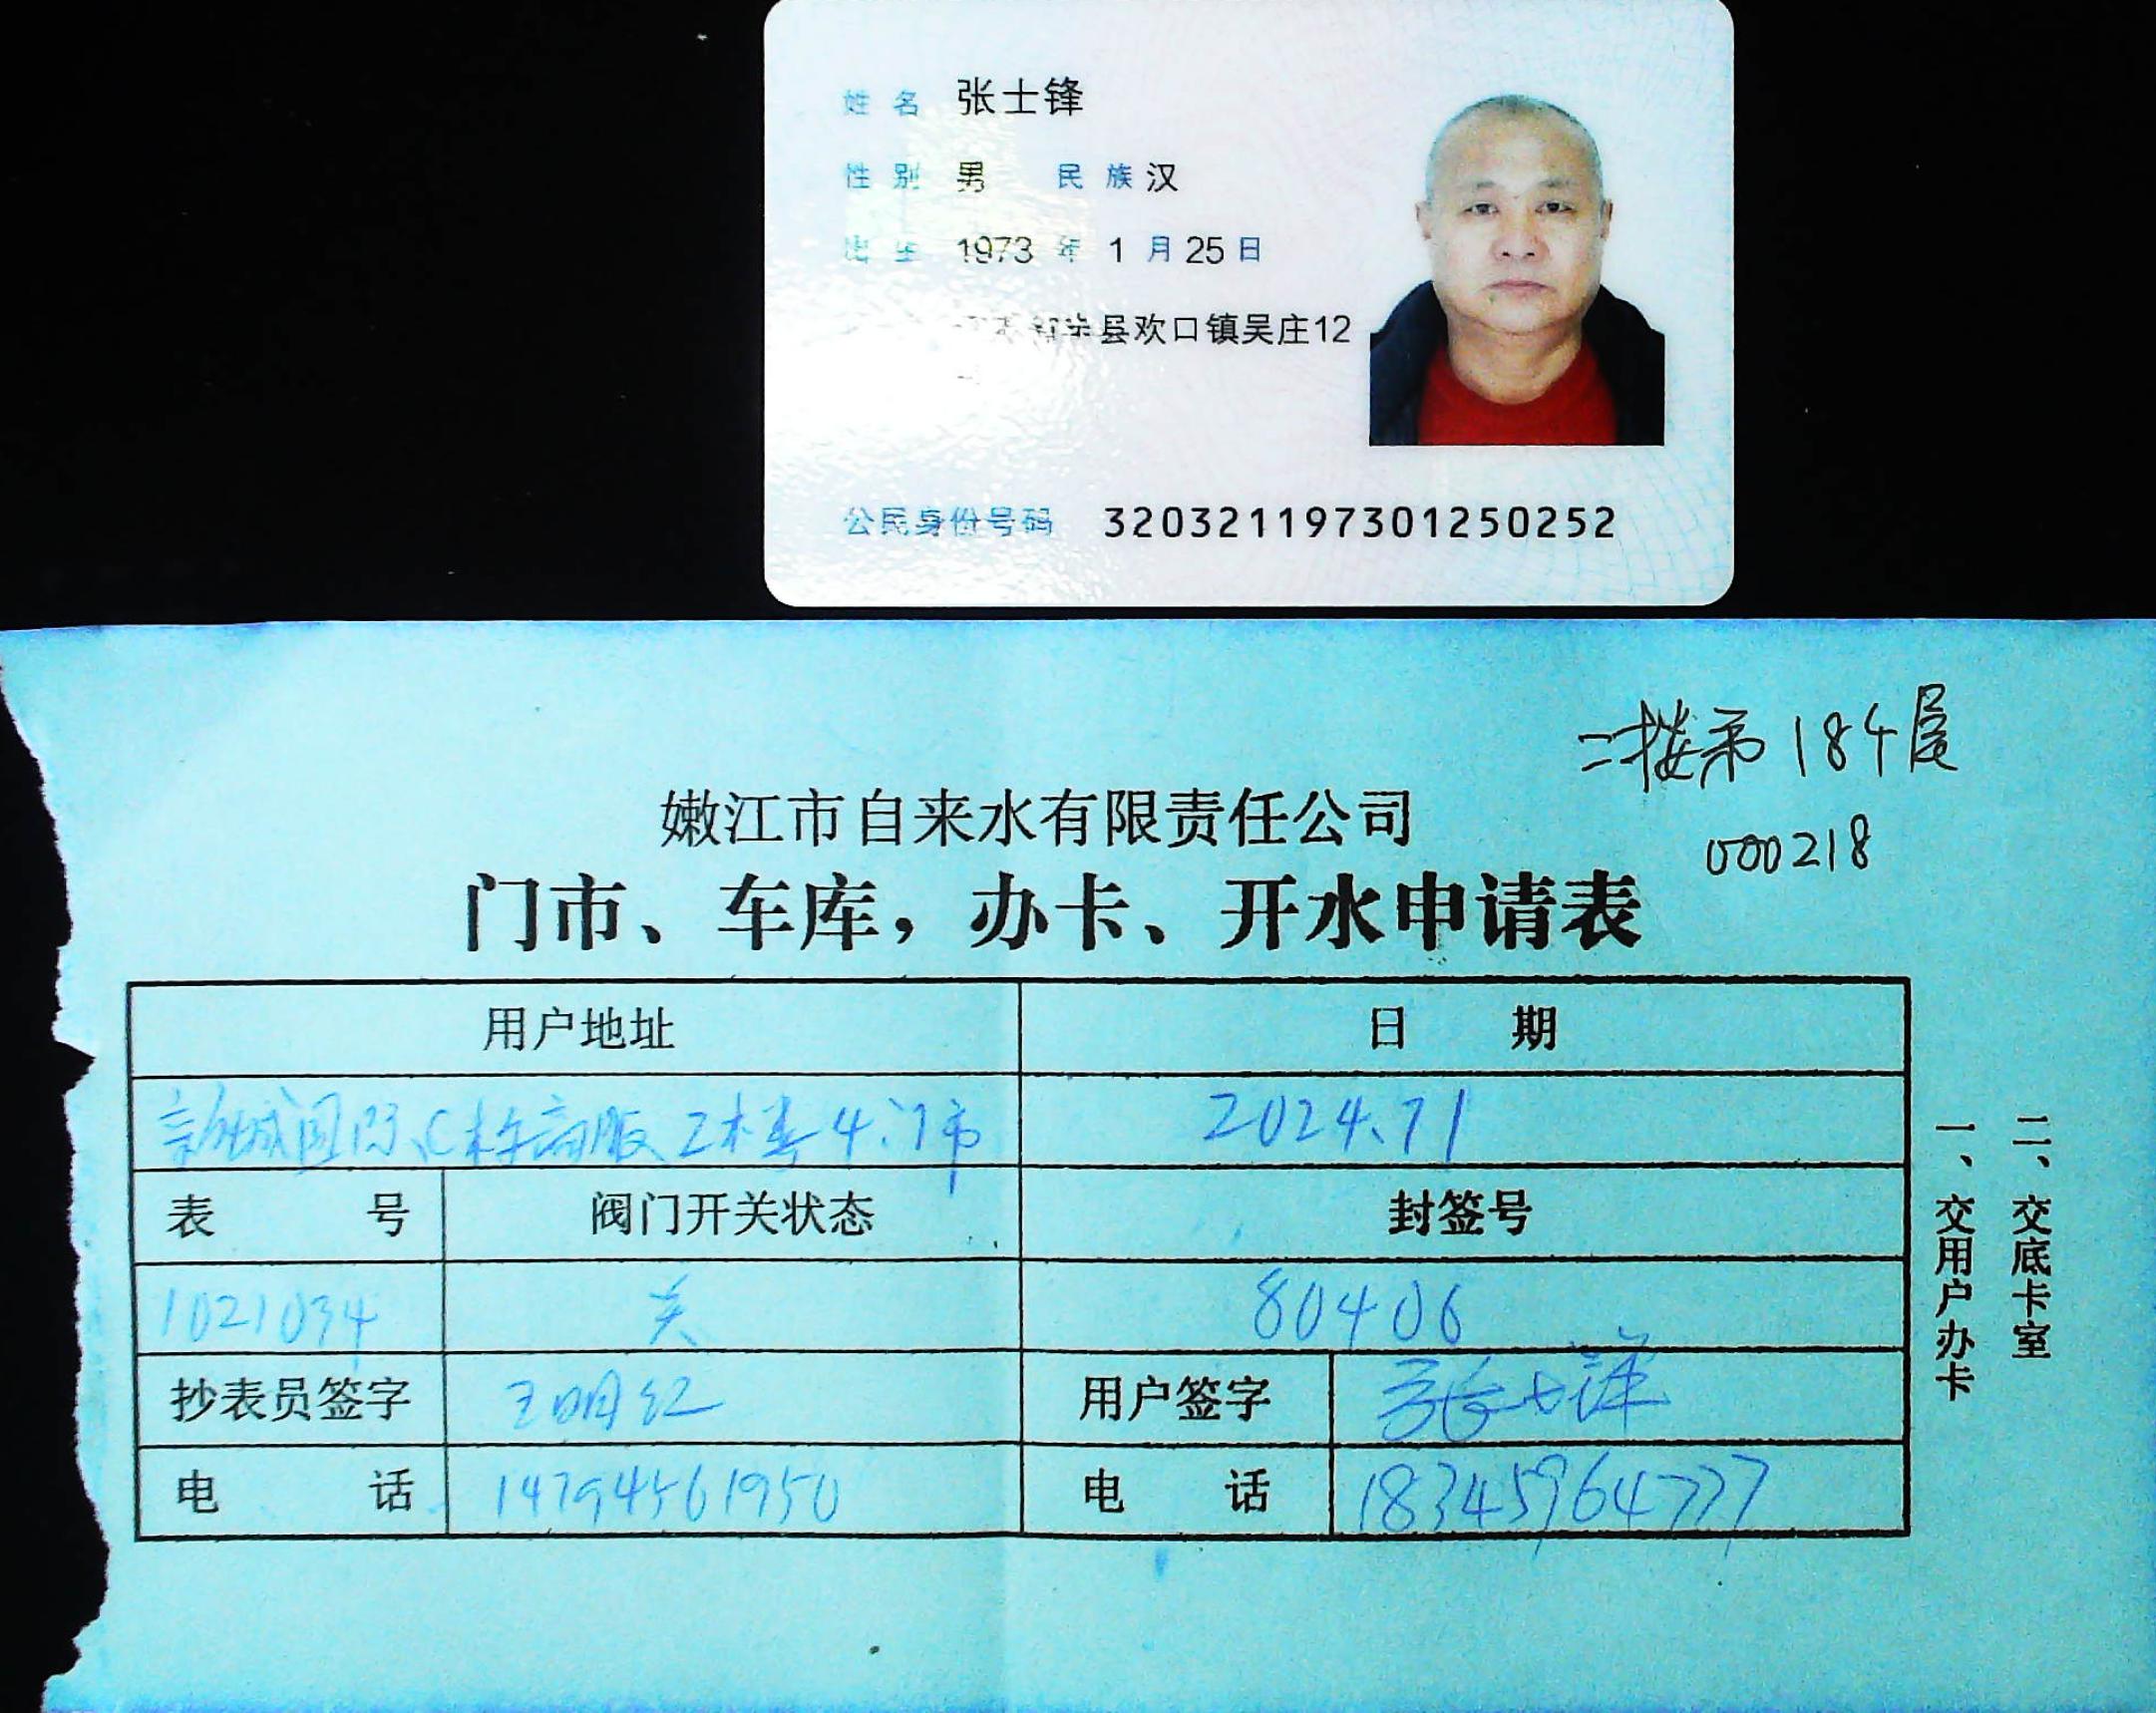 姓名 张士锋
性别 男 民族 汉
出生 1973 年 1 月 25 日
县欢口镇吴庄12
公民身份号码 320321197301250252
二楼第184屋
000218
嫩江市自来水有限责任公司
门市、车库，办卡、开水申请表
用户地址 日期
新城国际C栋高服2楼4门市 2024.71
表号 阀门开关状态 封签号
1021034 关 80406
抄表员签字 王明红 用户签字 张士锋
电话 14794561950 电话 18345964777
一、交用户办卡
二、交底卡室